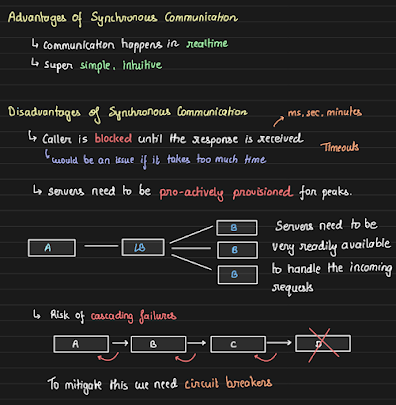 Advantages of Synchronous Communication
↳ communication happens in realtime
↳ super simple, intuitive
Disadvantages of Synchronous Communication
ms, sec, minutes
↳ Caller is blocked until the response is received
Timeouts
↳ would be an issue if it takes too much time
↳ servers need to be pro-actively provisioned for peaks.
A
LB
B
B
B
Servers need to be
very readily available
to handle the incoming
requests
↳ Risk of cascading failures
A
B
C
D
To mitigate this we need circuit breakers